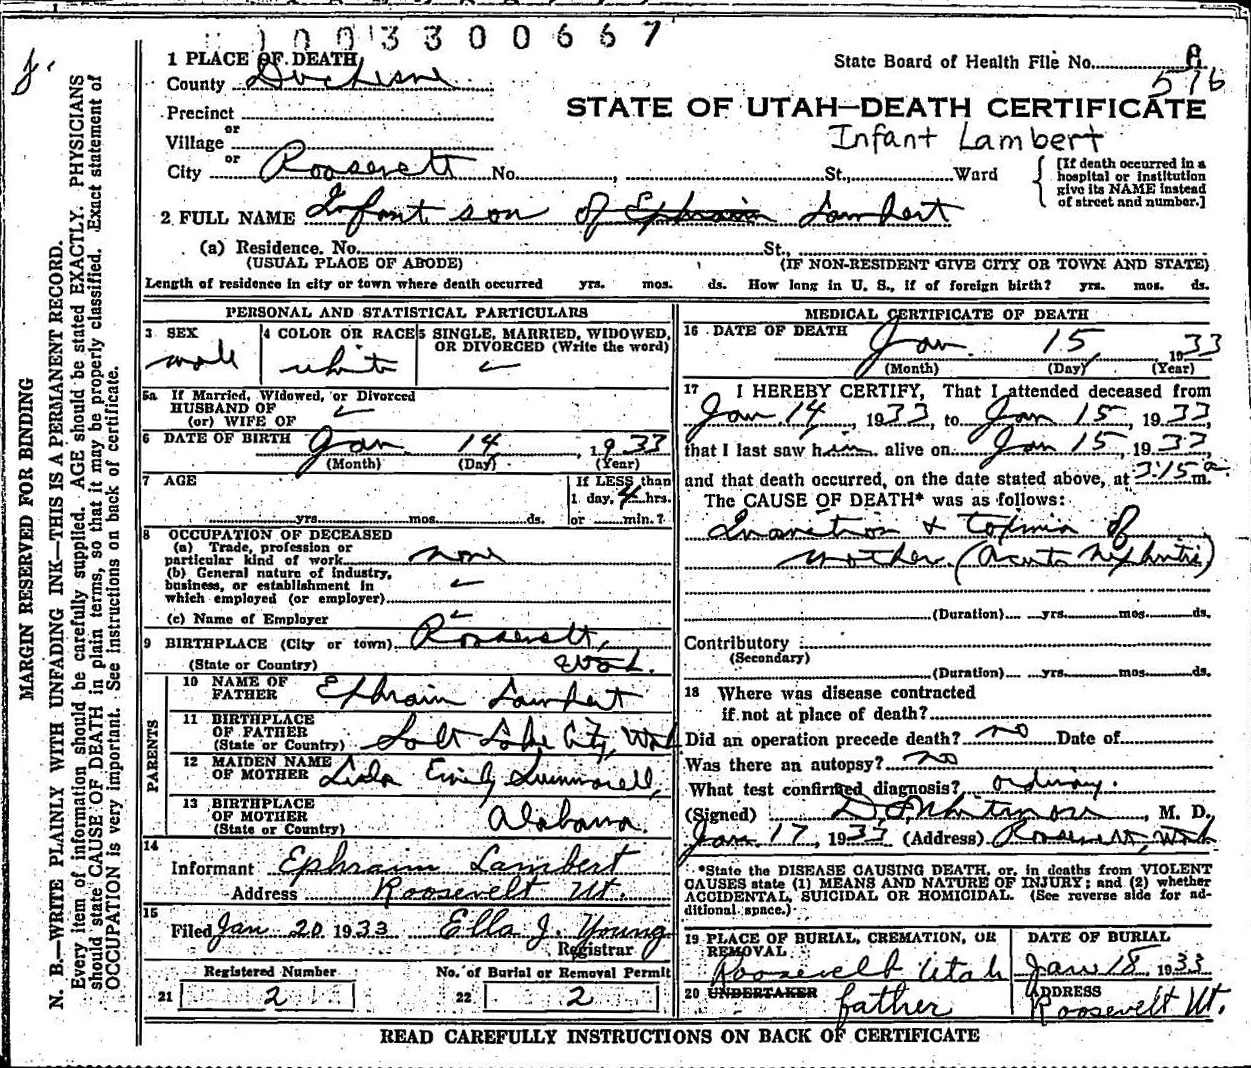 1003300667
1 PLACE OF DEATH
County Duchesne
State Board of Health File No. 
576
Precinct
or
Village
or
City Roosevelt No. , St., Ward
STATE OF UTAH—DEATH CERTIFICATE
Infant Lambert
[If death occurred in a
hospital or institution
give its NAME instead
of street and number.]
2 FULL NAME Infant son of Ephraim Lambert
(a) Residence. No. St.,
(USUAL PLACE OF ABODE) (IF NON-RESIDENT GIVE CITY OR TOWN AND STATE)
Length of residence in city or town where death occurred yrs. mos. ds. How long in U. S., if of foreign birth? yrs. mos. ds.
MARGIN RESERVED FOR BINDING
N. B.—WRITE PLAINLY WITH UNFADING INK—THIS IS A PERMANENT RECORD.
Every item of information should be carefully supplied. AGE should be stated EXACTLY. PHYSICIANS
should state CAUSE OF DEATH in plain terms, so that it may be properly classified. Exact statement of
OCCUPATION is very important. See instructions on back of certificate.
PERSONAL AND STATISTICAL PARTICULARS
3 SEX
male
4 COLOR OR RACE
white
5 SINGLE, MARRIED, WIDOWED,
OR DIVORCED (Write the word)
5a If Married, Widowed, or Divorced
HUSBAND OF
(or) WIFE OF
6 DATE OF BIRTH Jan 14, 1933
(Month) (Day) (Year)
7 AGE
yrs. mos. ds.
If LESS than
1 day, 4 hrs.
or min.?
8 OCCUPATION OF DECEASED
(a) Trade, profession or
particular kind of work none
(b) General nature of industry,
business, or establishment in
which employed (or employer)
(c) Name of Employer
9 BIRTHPLACE (City or town) Roosevelt,
(State or Country) Utah.
PARENTS
10 NAME OF
FATHER Ephraim Lambert
11 BIRTHPLACE
OF FATHER
(State or Country) Salt Lake City, Utah
12 MAIDEN NAME
OF MOTHER Emily Summarell,
13 BIRTHPLACE
OF MOTHER
(State or Country) Alabama.
14
Informant Ephraim Lambert
Address Roosevelt Ut.
15
Filed Jan 20 1933 Ella J. Young
Registrar
Registered Number
21 2
No. of Burial or Removal Permit
22 2
MEDICAL CERTIFICATE OF DEATH
16 DATE OF DEATH Jan. 15, 1933
(Month) (Day) (Year)
17 I HEREBY CERTIFY, That I attended deceased from
Jan 14, 1933 to Jan 15, 1933,
that I last saw him alive on Jan 15, 1933,
and that death occurred, on the date stated above, at 3:15 a. m.
The CAUSE OF DEATH* was as follows:
Inanition & Toximia of
mother. (Acute Nephritis)
(Duration) yrs. mos. ds.
Contributory
(Secondary)
(Duration) yrs. mos. ds.
18 Where was disease contracted
if not at place of death?
Did an operation precede death? no Date of
Was there an autopsy? no
What test confirmed diagnosis? ordinary.
(Signed) Whitmore, M. D.
Jan. 17, 1933 (Address) Roosevelt, Utah
*State the DISEASE CAUSING DEATH, or, in deaths from VIOLENT
CAUSES state (1) MEANS AND NATURE OF INJURY; and (2) whether
ACCIDENTAL, SUICIDAL OR HOMICIDAL. (See reverse side for ad-
ditional space.)
19 PLACE OF BURIAL, CREMATION, OR
REMOVAL
Roosevelt Utah
DATE OF BURIAL
Jan 18, 1933
20 UNDERTAKER father
ADDRESS
Roosevelt Ut.
READ CAREFULLY INSTRUCTIONS ON BACK OF CERTIFICATE